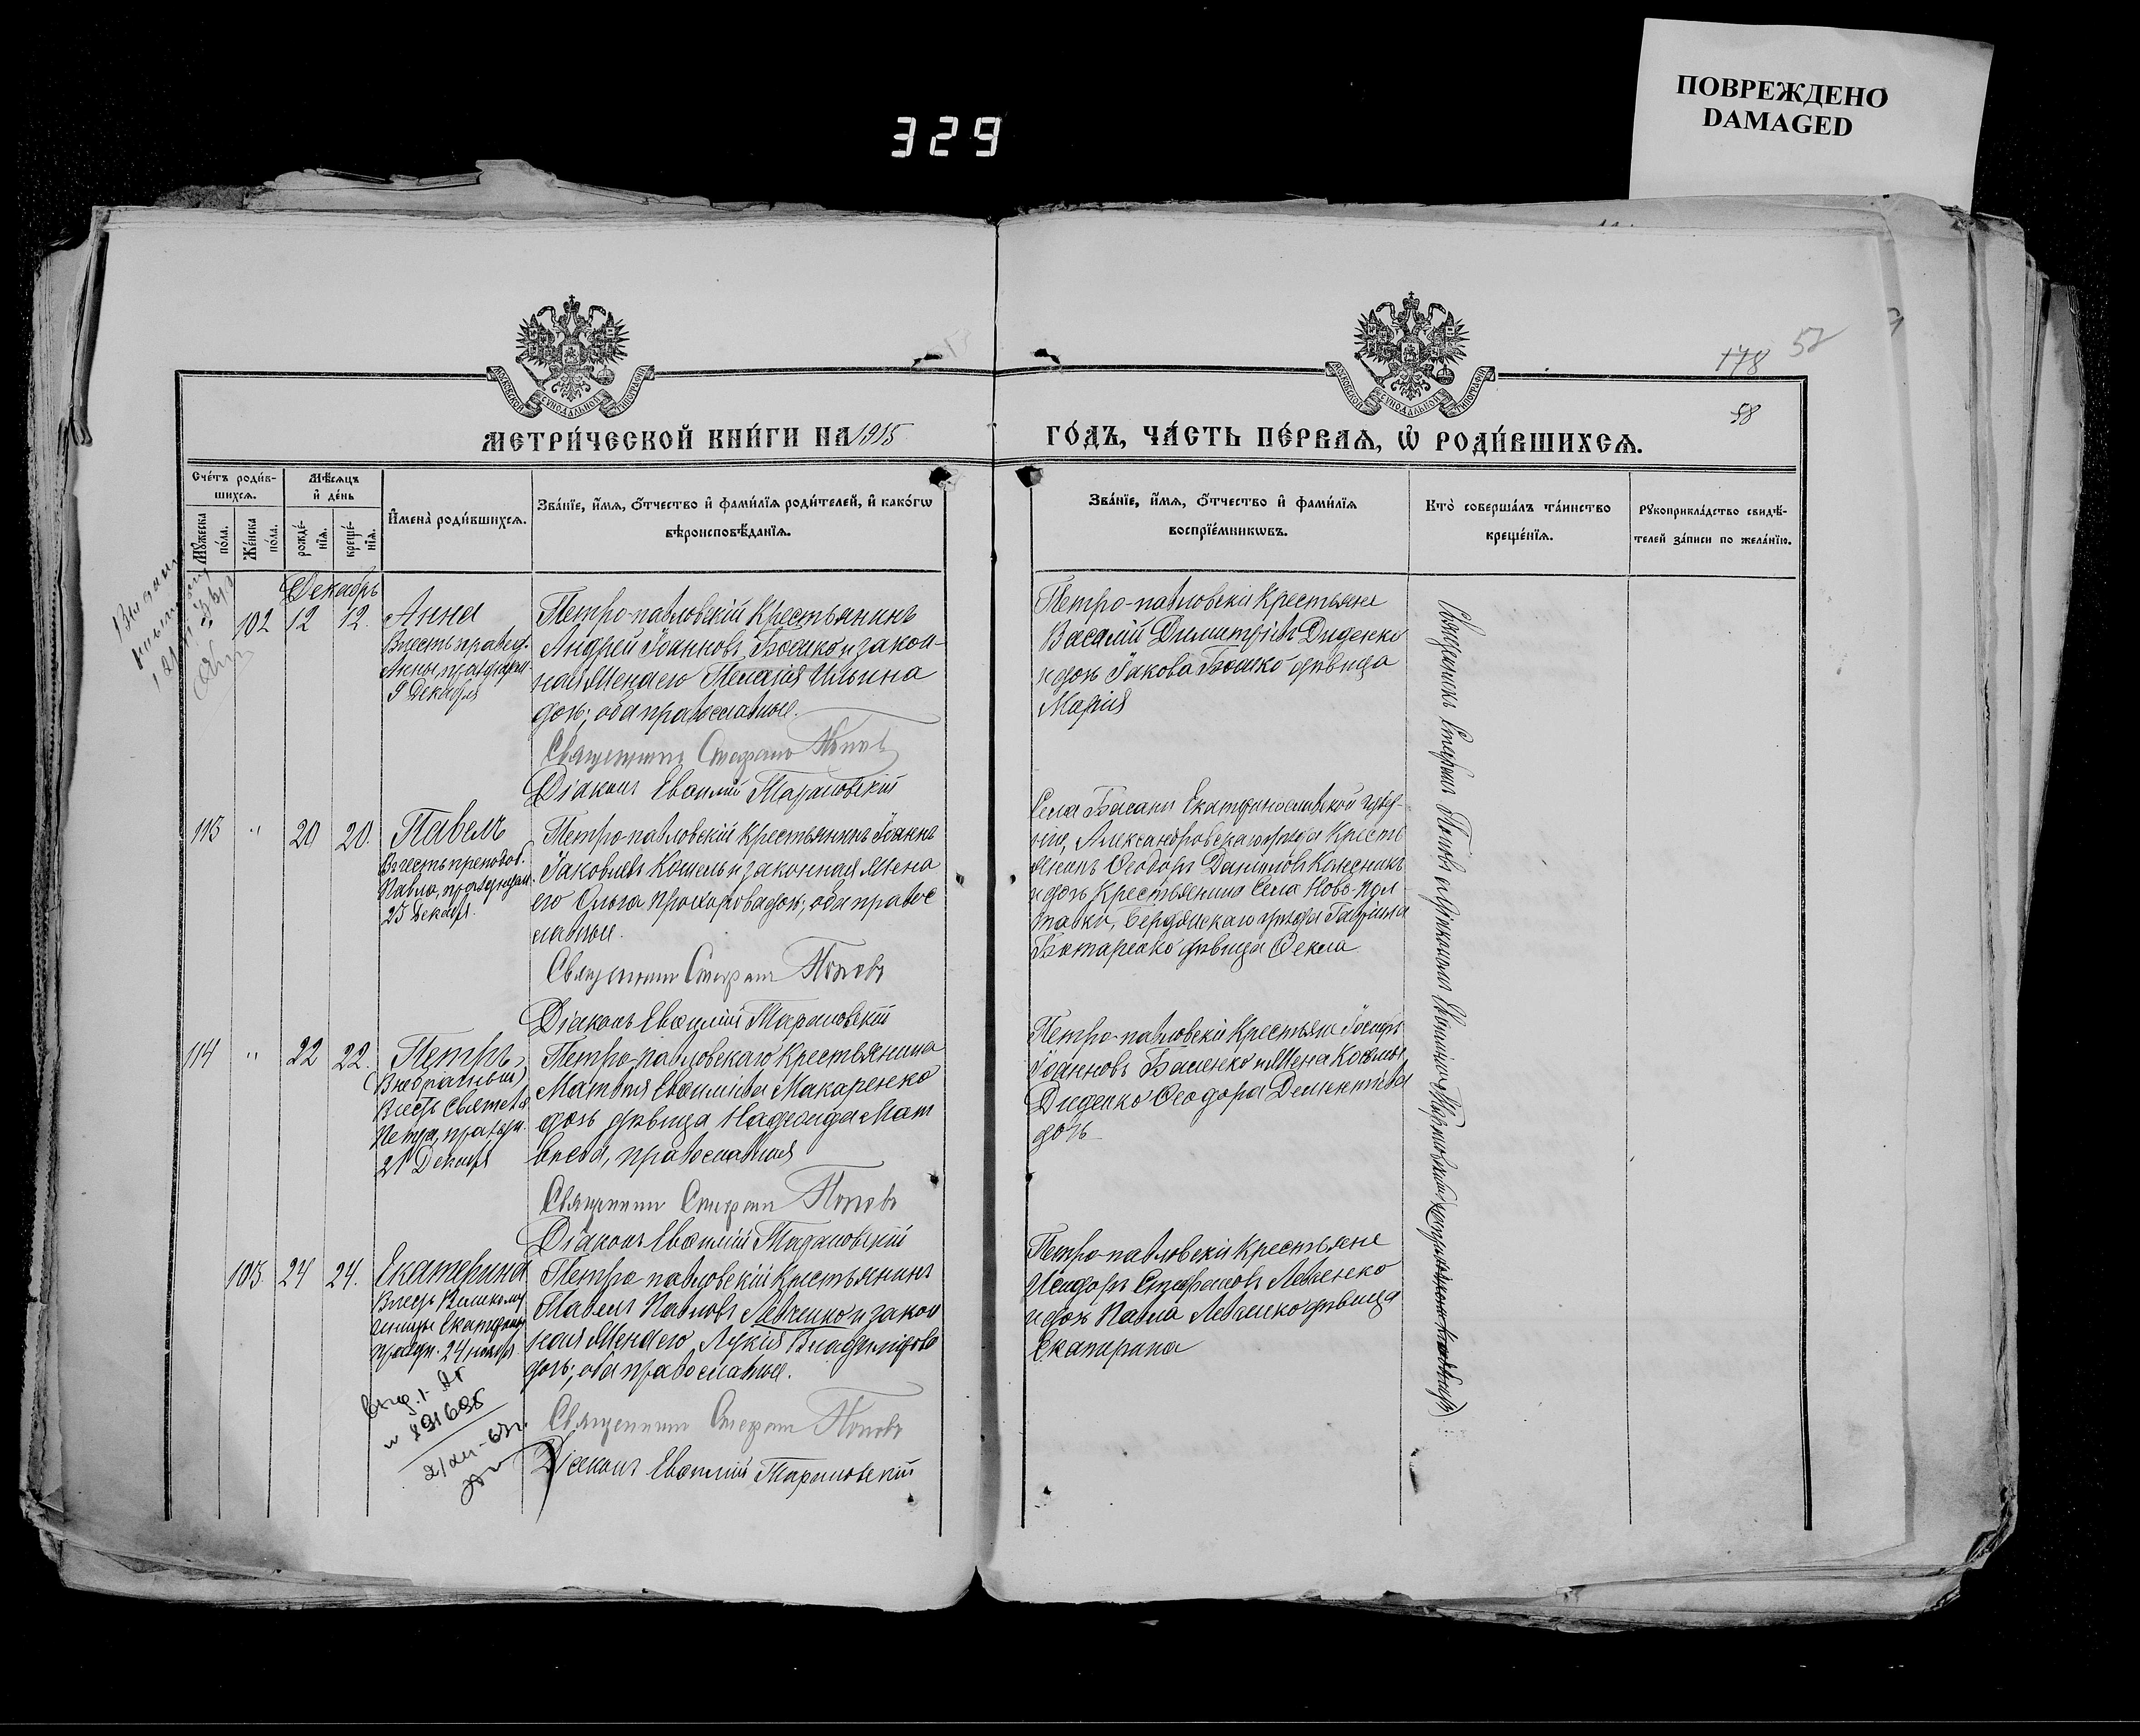 ПОВРЕЖДЕНО
DAMAGED
329
178
52
58
МОСКОВСКОЙ СѴНОДАЛЬНОЙ ТИПОГРАФІИ
МОСКОВСКОЙ СѴНОДАЛЬНОЙ ТИПОГРАФІИ
МЕТРИ́ЧЕСКОЙ КНИ́ГИ НА 1915
ГО́ДЪ, ЧА́СТЬ ПЕ́РВАЯ, Ѡ҆ РОДИ́ВШИХСЯ.
Сче́тъ роди́в-
шихся.
Мѣ́сяцъ
и҆ де́нь
Му́жеска
по́ла.
Же́нска
по́ла.
рожде́-
нїя.
креще́-
нїя.
И҆мена̀ роди́вшихся.
Зва́нїе, и҆́мя, ѻ҆́тчество и҆ фами́лїя роди́телей, и҆ како́гѡ
вѣроисповѣ́данїя.
Зва́нїе, и҆́мя, ѻ҆́тчество и҆ фами́лїя
воспрїе́мникѡвъ.
Кто̀ соверша́лъ та́инство
креще́нїя.
Рукоприкла́дство свидѣ́-
телей за́писи по жела́нїю.
Декабрь
102 12 12. Анна
Въ честь правед.
Анны, празднуем
9 Декабря
Петро-павловскій Крестьянинъ
Андрей Іоанновъ Бошко и закон-
ная жена его Пелагія Ильина
дочь; оба православные.
Священникъ Стефанъ Поповъ
Діаконъ Евѳимій Тарановскій
Петро-павловскіе Крестьяне
Василій Димитріевъ Диденко
и дочь Іакова Бошко дѣвица
Марія
113 " 20 20. Павелъ
Въ честь преподоб.
Павла, празднуем.
23 Декабря.
Петро-павловскій Крестьянинъ Іоаннъ
Іаковлевъ Кошель и законная жена
его Ольга Прохорова дочь; оба правос
лавные.
Священникъ Стефанъ Поповъ
Діаконъ Евѳимій Тарановскій
Села Басани Екатеринославской губер-
ніи, Александровскаго уѣзда Кресть
янинъ Ѳеодоръ Даниловъ Колесникъ
и дочь Крестьянина Села Ново-Пол
тавки, Бердянскаго уѣзда Гавріила
Ботаренко дѣвица Ѳекла
114 " 22 22. Петръ
(Внебрачный)
Въ честь Святителя
Петра, праздн.
21 Декабря
Петро-павловскаго Крестьянина
Матѳія Евѳиміева Макаренко
дочь дѣвица Надежда Мат
вѣева, православная
Священникъ Стефанъ Поповъ
Діаконъ Евѳимій Тарановскій
Петро-павловскіе Крестьяне Іосифъ
Іоанновъ Баленко и жена Космы
Диденко Ѳеодора Дементіева
дочь
103 24 24. Екатерина
Въ честь Великому
ченицы Екатерины
праздн. 24 ноября
Петро павловскій Крестьянинъ
Павелъ Павловъ Левченко и закон
ная жена его Лукія
дочь; оба православные.
Священникъ Стефанъ Поповъ
Діаконъ Евѳимій Тарановскій
Петро-павловскіе Крестьяне
Исидоръ Стефановъ Левченко
и дочь Павла Левченко дѣвица
Екатерина
Священникъ Стефанъ Поповъ съ Діакономъ Евѳиміемъ Тарановскимъ